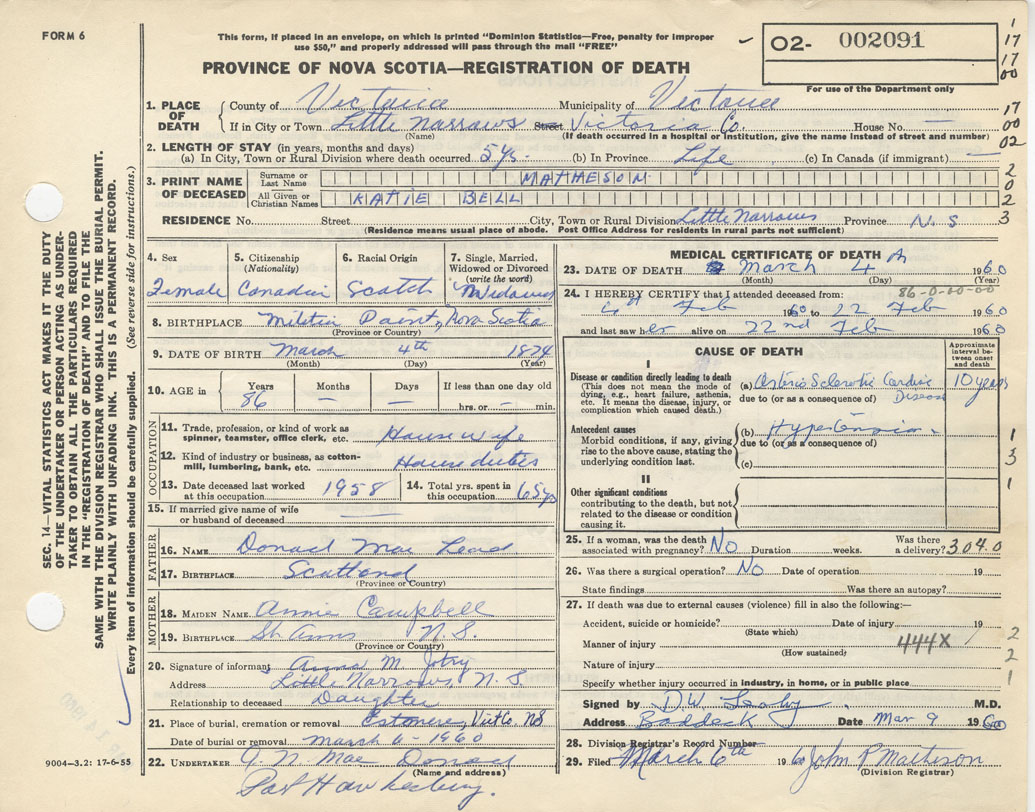 FORM 6
This form, if placed in an envelope, on which is printed "Dominion Statistics—Free, penalty for improper
use $50," and properly addressed will pass through the mail "FREE"
PROVINCE OF NOVA SCOTIA—REGISTRATION OF DEATH
02- 002091
For use of the Department only
1
17
17
00
17
00
02
2
0
2
3
1. PLACE OF DEATH
County of Victoria Municipality of Victoria
If in City or Town Little Narrows Street Victoria Co. House No. —
(Name) (If death occurred in a hospital or institution, give the name instead of street and number)
2. LENGTH OF STAY (in years, months and days)
(a) In City, Town or Rural Division where death occurred 5 ys. (b) In Province Life (c) In Canada (if immigrant) —
3. PRINT NAME OF DECEASED
Surname or Last Name MATHESON
All Given or Christian Names KATIE BELL
RESIDENCE No. Street City, Town or Rural Division Little Narrows Province N.S
(Residence means usual place of abode. Post Office Address for residents in rural parts not sufficient)
4. Sex Female
5. Citizenship (Nationality) Canadian
6. Racial Origin Scotch
7. Single, Married, Widowed or Divorced (write the word) Widowed
8. BIRTHPLACE Point, Nova Scotia
(Province or Country)
9. DATE OF BIRTH March 4th 1874
(Month) (Day) (Year)
10. AGE in Years 86 Months — Days — If less than one day old
hrs. or — min.
OCCUPATION
11. Trade, profession, or kind of work as
spinner, teamster, office clerk, etc. Housewife
12. Kind of industry or business, as cotton-
mill, lumbering, bank, etc. House duties
13. Date deceased last worked
at this occupation 1958
14. Total yrs. spent in
this occupation 65 ys
15. If married give name of wife
or husband of deceased
FATHER
16. NAME Donald Mac Leod
17. BIRTHPLACE Scotland
(Province or Country)
MOTHER
18. MAIDEN NAME Annie Campbell
19. BIRTHPLACE St. Anns N.S.
(Province or Country)
20. Signature of informant Anna M.
Address Little Narrows, N.S
Relationship to deceased Daughter
21. Place of burial, cremation or removal Estmere, Vict Co. NS
Date of burial or removal March 6 - 1960
22. UNDERTAKER Mac Donald
(Name and address)
Port Hawkesbury.
MEDICAL CERTIFICATE OF DEATH
23. DATE OF DEATH March 4th 1960
(Month) (Day) (Year)
86-0-00-00
24. I HEREBY CERTIFY that I attended deceased from:
4th Feb 1960 to 22 Feb 1960
and last saw her alive on 22nd Feb 1960
CAUSE OF DEATH
Approximate interval between onset and death
I
Disease or condition directly leading to death
(This does not mean the mode of
dying, e.g., heart failure, asthenia,
etc. It means the disease, injury, or
complication which caused death.)
(a) Arterio Sclerotic Cardiac Disease 10 years
due to (or as a consequence of)
Antecedent causes
Morbid conditions, if any, giving
rise to the above cause, stating the
underlying condition last.
(b) Hypertension
due to (or as a consequence of)
(c)
1
3
1
II
Other significant conditions
contributing to the death, but not
related to the disease or condition
causing it.
25. If a woman, was the death
associated with pregnancy? No Duration weeks. Was there
a delivery? 3040
26. Was there a surgical operation? No Date of operation 19
State findings Was there an autopsy?
27. If death was due to external causes (violence) fill in also the following:—
Accident, suicide or homicide? Date of injury 19
(State which)
Manner of injury 444X
(How sustained)
Nature of injury
2
2
1
Specify whether injury occurred in industry, in home, or in public place
Signed by D.W. M.D.
Address Baddeck Date Mar 9 1960
28. Division Registrar's Record Number
29. Filed March 6th 1960 John P Matheson
(Division Registrar)
SEC. 14—VITAL STATISTICS ACT MAKES IT THE DUTY
OF THE UNDERTAKER OR PERSON ACTING AS UNDER-
TAKER TO OBTAIN ALL THE PARTICULARS REQUIRED
IN THE "REGISTRATION OF DEATH" AND TO FILE THE
SAME WITH THE DIVISION REGISTRAR WHO SHALL ISSUE THE BURIAL PERMIT.
WRITE PLAINLY WITH UNFADING INK. THIS IS A PERMANENT RECORD.
Every item of information should be carefully supplied. (See reverse side for instructions.)
9004—3.2: 17-6-55